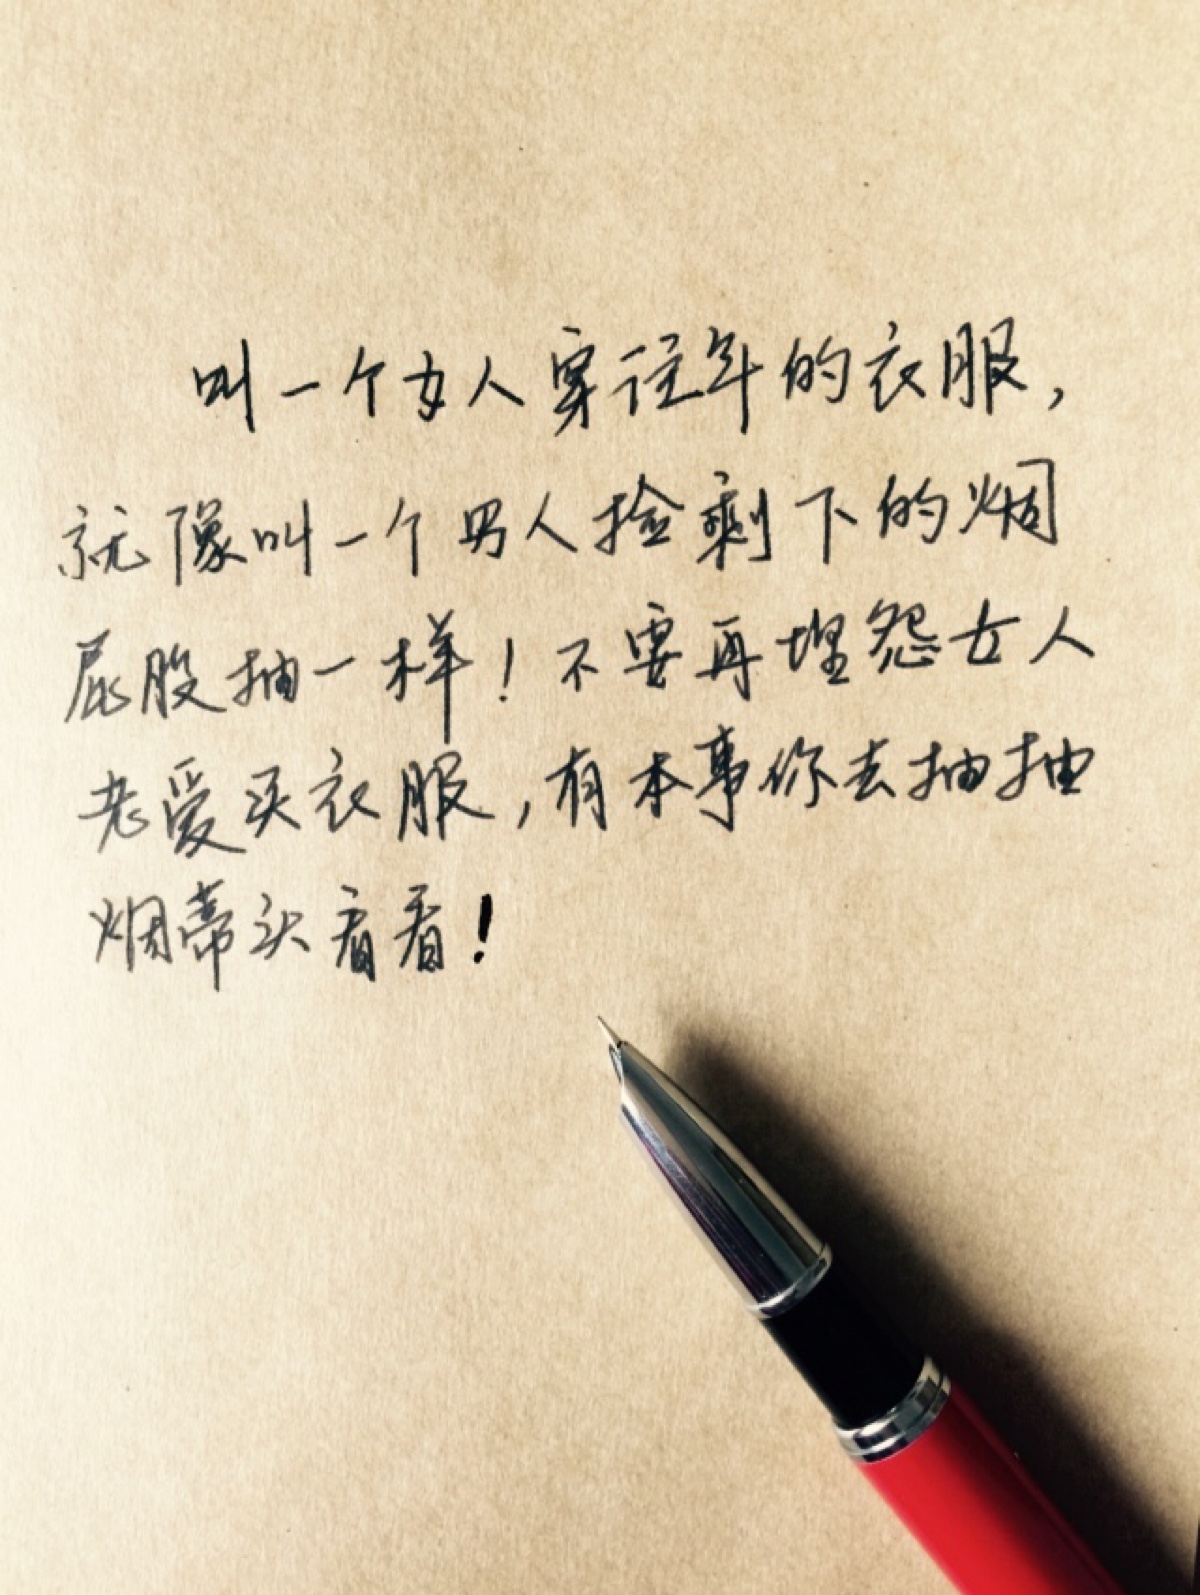 叫一个女人穿往年的衣服,
就像叫一个男人捡剩下的烟
屁股抽一样!不要再埋怨女人
老爱买衣服,有本事你去抽抽
烟蒂头看看!